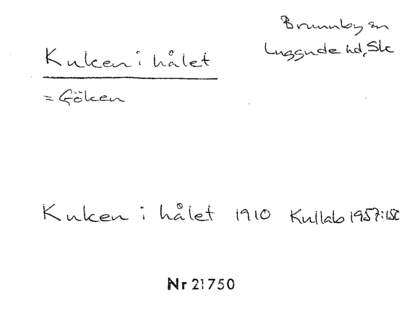 Brunnby sn
Luggude hd, Sk
Kuken i hålet
= Göken
Kuken i hålet 1910 Kullab 1957:150
Nr 21750